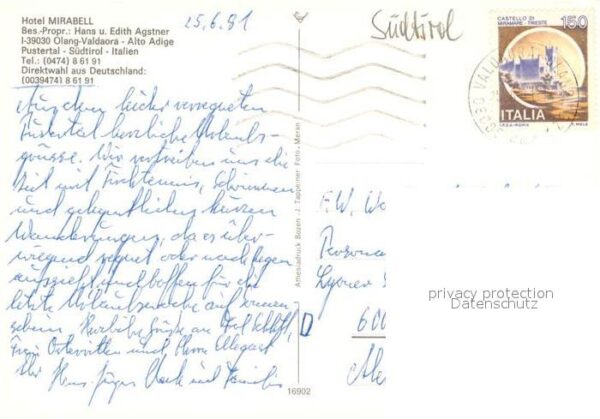 Hotel MIRABELL
Bes.-Propr.: Hans u. Edith Agstner
I-39030 Olang-Valdaora - Alto Adige
Pustertal - Südtirol - Italien
Tel.: (0474) 8 61 91
Direktwahl aus Deutschland:
(0039474) 8 61 91
25.6.91
Südtirol
CASTELLO DI
MIRAMARE - TRIESTE
150
ITALIA
Aus dem leider verregneten
Pustertal herzliche Urlaubs-
grüsse. Wir vertreiben uns die
Zeit mit Tischtennis, Schwimmen
und gelegentlichen kurzen
Wanderungen, da es über-
wiegend regnet oder nach Regen
aussieht und hoffen für die
letzte Urlaubswoche auf
sehen. Herzliche Grüße an
Frau und Herrn
Ihr Hans-Jürgen und Familie
Amesiadruck Bozen J. Tappeiner Foto, Meran
16902
F.W.
D
600
privacy protection
Datenschutz